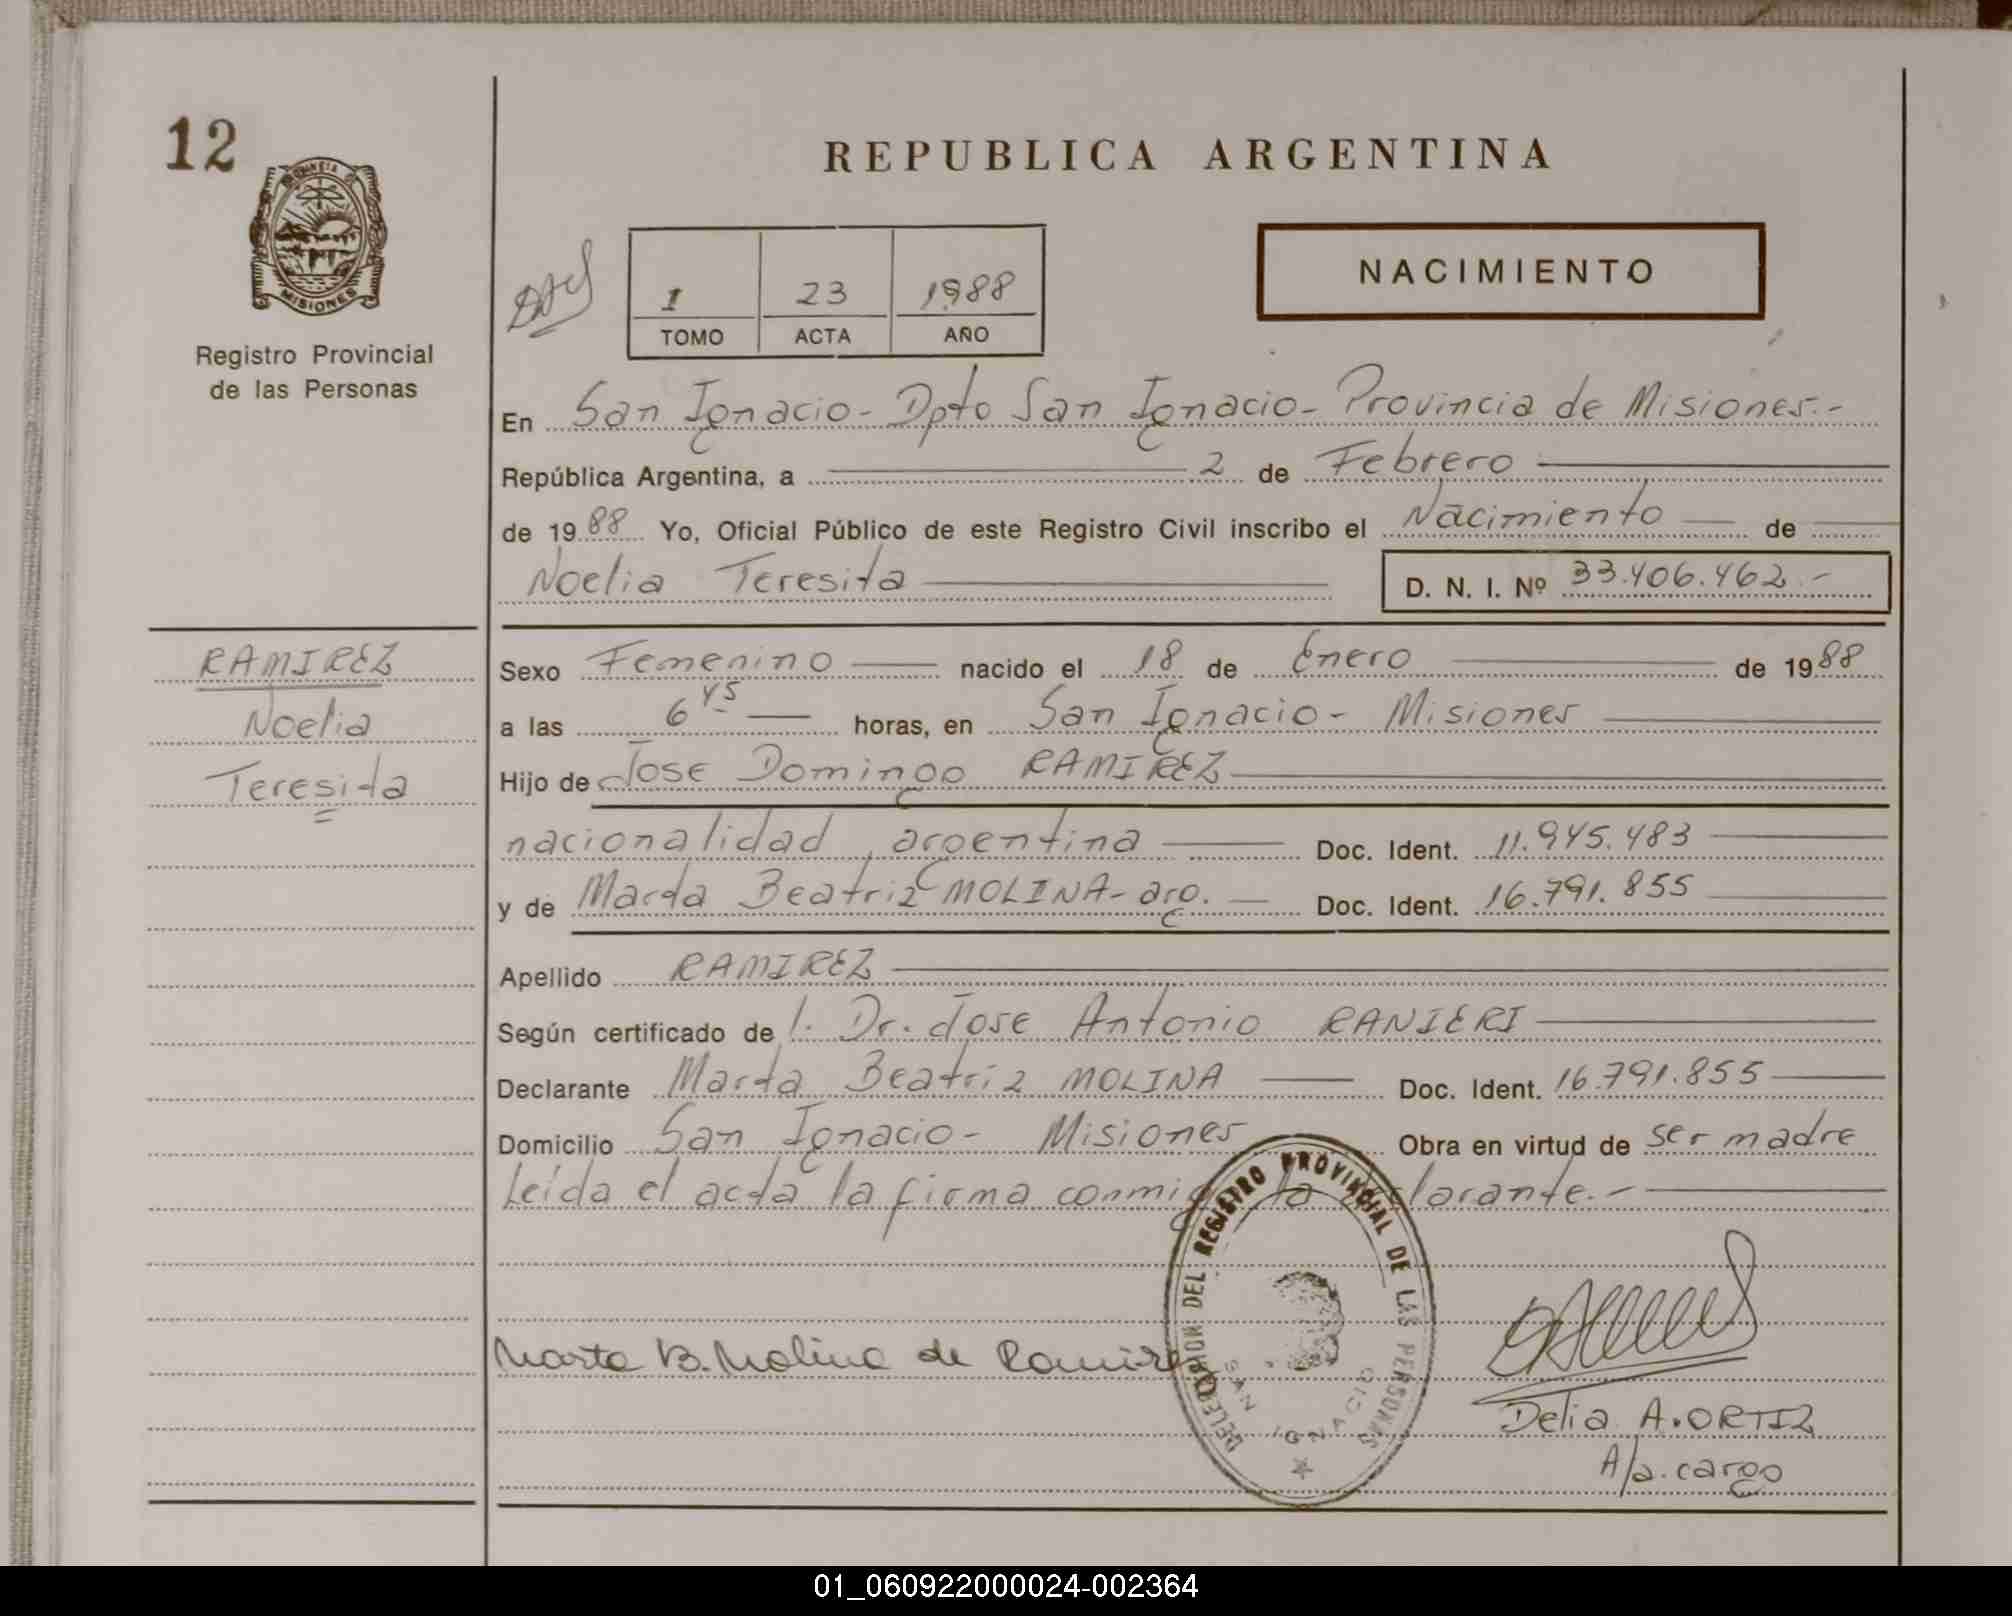 12
PROVINCIA DE
MISIONES
Registro Provincial
de las Personas
REPUBLICA ARGENTINA
1 23 1988
TOMO ACTA AÑO
NACIMIENTO
En San Ignacio - Dpto San Ignacio - Provincia de Misiones.-
República Argentina, a 2 de Febrero
de 1988 Yo, Oficial Público de este Registro Civil inscribo el Nacimiento de
Noelia Teresita D. N. I. Nº 33.406.462.-
RAMIREZ
Noelia
Teresita
Sexo Femenino nacido el 18 de Enero de 1988
a las 6 45 horas, en San Ignacio - Misiones
Hijo de Jose Domingo RAMIREZ
nacionalidad argentina Doc. Ident. 11.945.483
y de Marta Beatriz MOLINA - arg. Doc. Ident. 16.791.855
Apellido RAMIREZ
Según certificado de l. Dr. Jose Antonio RANIERI
Declarante Marta Beatriz MOLINA Doc. Ident. 16.791.855
Domicilio San Ignacio - Misiones Obra en virtud de ser madre
Leída el acta la firma conmigo la declarante.-
DELEGACION DEL REGISTRO PROVINCIAL DE LAS PERSONAS
SAN IGNACIO
Marta B. Molina de Ramirez
Delia A. ORTIZ
A/a. cargo
01_060922000024-002364